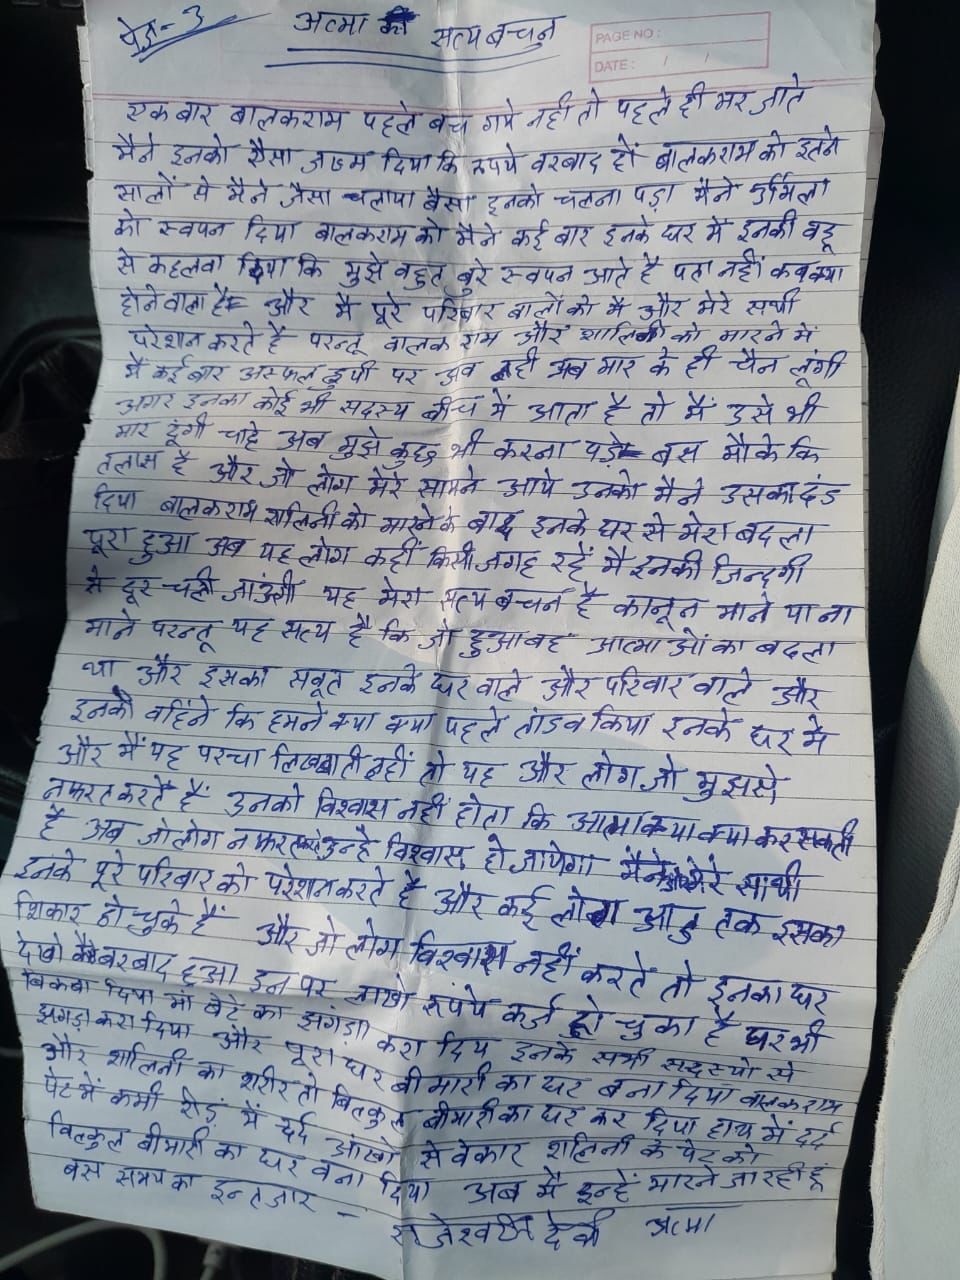 पेज-3
आत्मा की सत्य बच्चन
PAGE NO :
DATE : / /
एक बार बालकराम पहले बच गये नहीं तो पहले ही मर जाते
मैने इनको ऐसा जख्म दिया कि रुपये बरबाद हों बालकराम को इतने
सालों से मैने जैसा चलाया वैसा इनको चलना पड़ा मैने उर्मिला
को स्वपन दिया बालकराम को मैने कई बार इनके घर में इनकी बहू
से कहलवा दिया कि मुझे बहुत बुरे स्वपन आते है पता नहीं कब क्या
होने वाला है और मै पूरे परिवार वालों को मै और मेरे सभी
परेशान करते है परन्तू बालक राम और शालिनी को मारने में
मै कई बार असफल हुयी पर अब नही अब मार के ही चैन लूंगी
अगर इनका कोई भी सदस्य बीच में आता है तो मैं उसे भी
मार दूंगी चाहे अब मुझे कुछ भी करना पड़े बस मौके कि
तलास है और जो लोग मेरे सामने आये उनको मैने उसका दंड
दिया बालकराम शालिनी को मारने के बाद इनके घर से मेरा बदला
पूरा हुआ अब यह लोग कहीं किसी जगह रहें मै इनकी जिन्दगी
से दूर चली जाउंगी यह मेरा सत्य बच्चन है कानून माने या ना
माने परन्तू यह सत्य है कि जो हुआ बह आत्माओं का बदला
था और इसका सबूत इनके घर वाले और परिवार वाले और
इनकी बहिने कि हमने क्या क्या पहले तांडव किया इनके घर मे
और मैं यह परचा लिखवाती नहीं तो यह और लोग जो मुझसे
नफरत करते हैं उनको विश्वास नहीं होता कि आत्मा क्या क्या कर सकती
है अब जो लोग नफरत करते उन्हे विश्वास हो जायेगा मैने और मेरे साथी
इनके पूरे परिवार को परेशान करते है और कई लोग आज तक इसका
शिकार हो चुके हैं और जो लोग विश्वास नहीं करते तो इनका घर
देखो कैसे बरबाद हुआ इन पर लाखो रूपये कर्ज हो चुका है घर भी
बिकवा दिया माँ बेटे का झगड़ा करा दिय इनके सभी सदस्यो से
झगड़ा करा दिया और पूरा घर बीमारी का घर बना दिया बालकराम
और शालिनी का शरीर तो बिल्कुल बीमारी का घर कर दिया हाथ में दर्द
पेट में कमी रीड़ में दर्द आंखो से बेकार शालिनी के पेट को
बिल्कुल बीमारी का घर बना दिया अब मै इन्हें मारने जा रही हूं
बस समय का इन्तजार -
राजेश्वरी देवी आत्मा